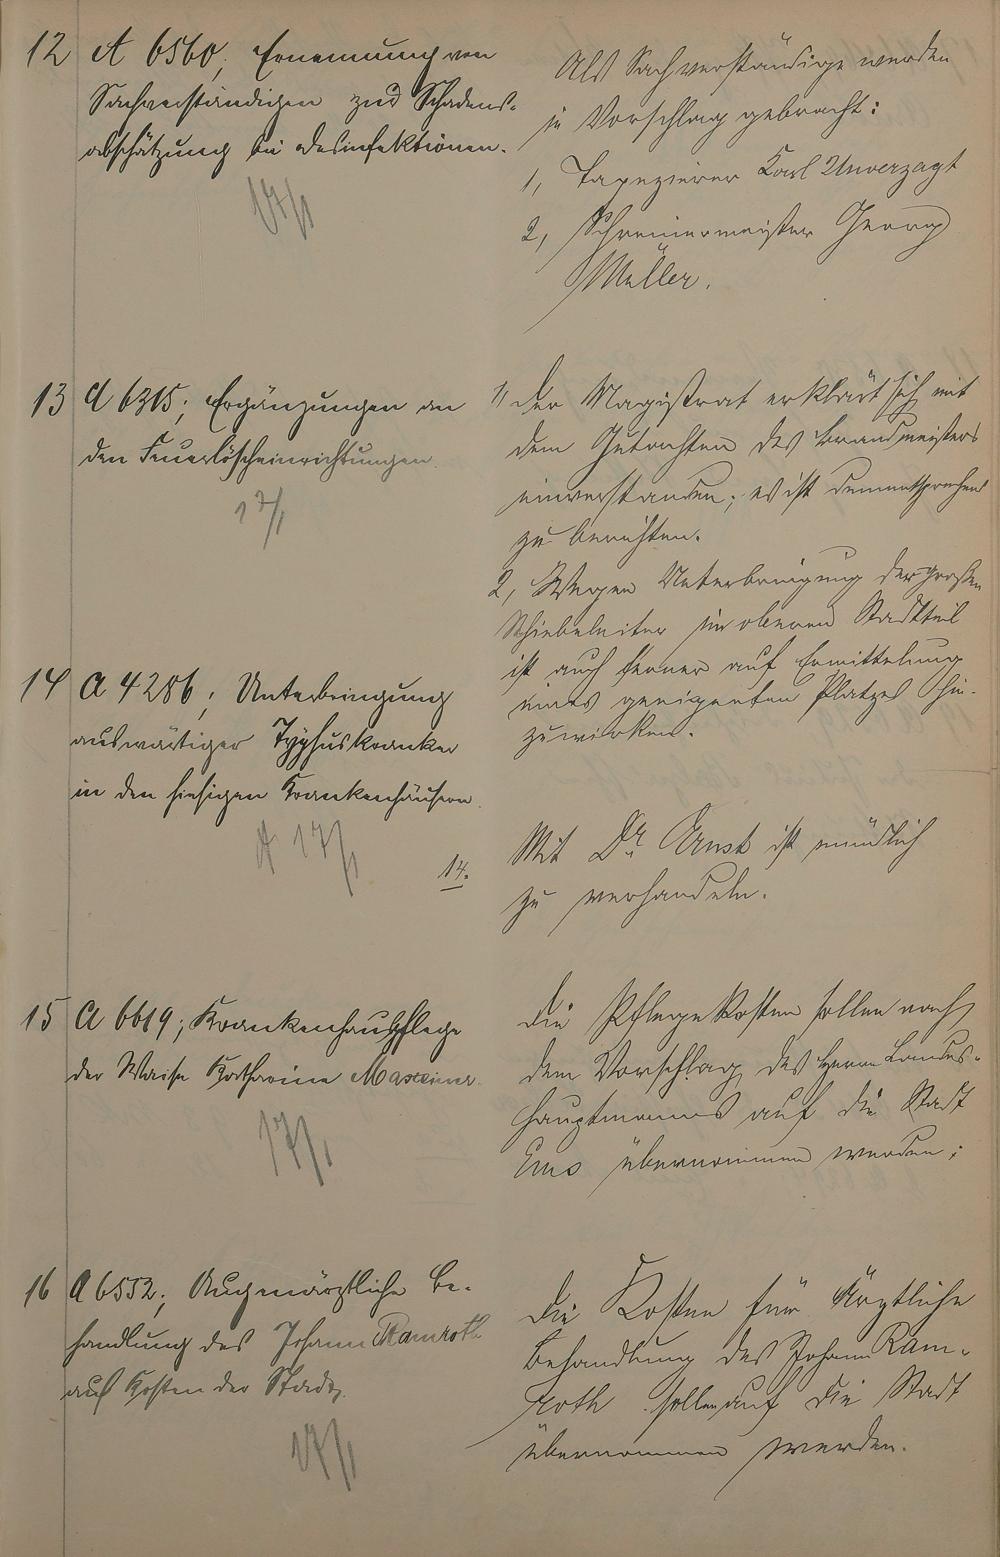 12 A 6560; Ernennung von
Sachverständigen zur Schadens-
abschätzung bei Desinfektionen.
17/1
Als Sachverständige werden
in Vorschlag gebracht:
1, Tapezierer Karl Unverzagt
2, Schreinermeister Georg
Müller.
13 A 6315; Ergänzungen an
den Feuerlöscheinrichtungen.
17/1
1, Der Magistrat erklärt sich mit
dem Gutachten des Brandmeisters
einverstanden; es ist dementsprechend
zu berichten.
2, Wegen Unterbringung der großen
Schiebeleiter im oberen Stadtteil
ist auch ferner auf Ermittelung
eines geeigneten Platzes hin-
zuwirken.
14 A 4286; Unterbringung
auswärtiger Typhuskranker
in den hiesigen Krankenhäusern.
A 17/1
14.
Mit Dr. Ernst ist mündlich
zu verhandeln.
15 A 6619; Krankenhauspflege
der Waise Katharina Maxeiner.
17/1
Die Pflegekosten sollen nach
dem Vorschlag des Herrn Landes-
hauptmanns auf die Stadt
Ems übernommen werden;
16 A 6552; Augenärztliche Be-
handlung des Johann Ramroth
auf Kosten der Stadt.
17/1
Die Kosten für Ärztliche
Behandlung des Johann Ram-
roth sollen auf die Stadt
übernommen werden.